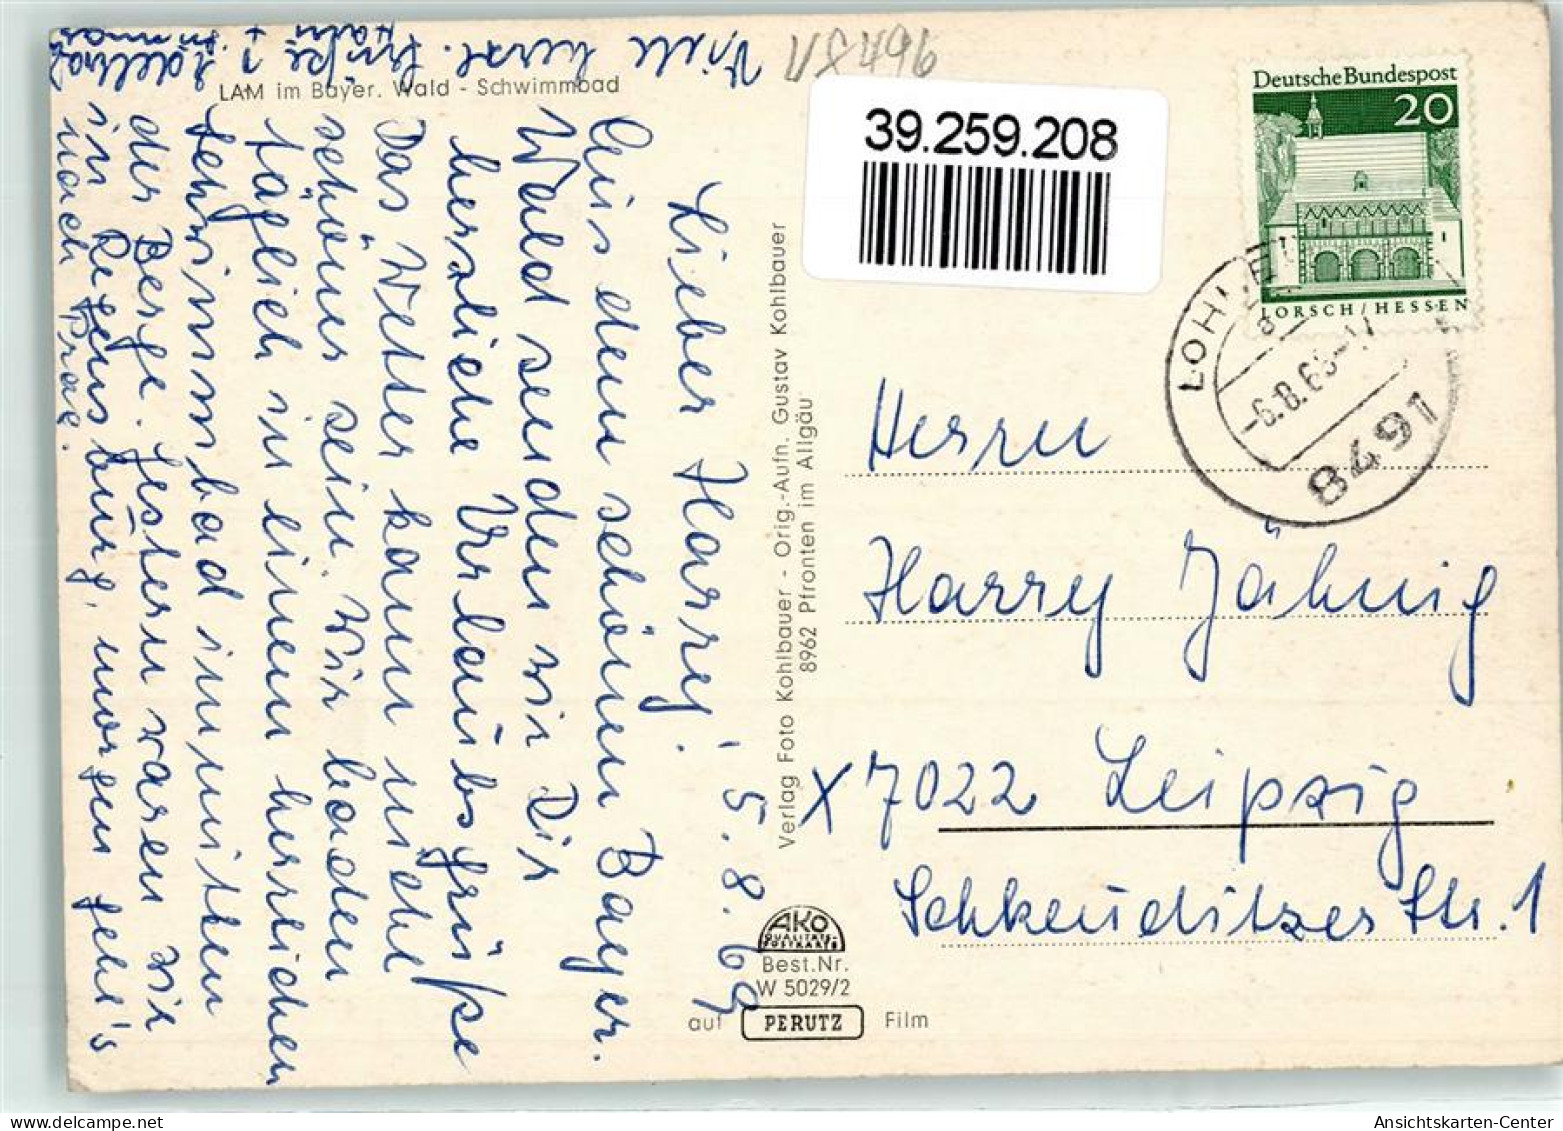 LAM im Bayer. Wald - Schwimmbad
5.8.69
Lieber Harry!
Aus dem schönen Bayer.
Wald senden wir Dir
herzliche Urlaubsgrüße
Das Wetter kann nicht
schöner sein. Wir baden
täglich in einem herrlichen
Schwimmbad inmitten
der Berge. Gestern waren wir
in Regensburg, morgen geht's
nach Prag.
Viele herzl.
Verlag Foto Kohlbauer - Orig.-Aufn. Gustav Kohlbauer
8962 Pfronten im Allgäu
39.259.208
Deutsche Bundespost
20
LORSCH/HESSEN
8491
Herrn
Harry Jähnig
X 7022 Leipzig
Schkeuditzer Str. 1
AKO
QUALITÄTS-
POSTKARTE
Best.Nr.
W 5029/2
auf PERUTZ Film
Ansichtskarten-Center